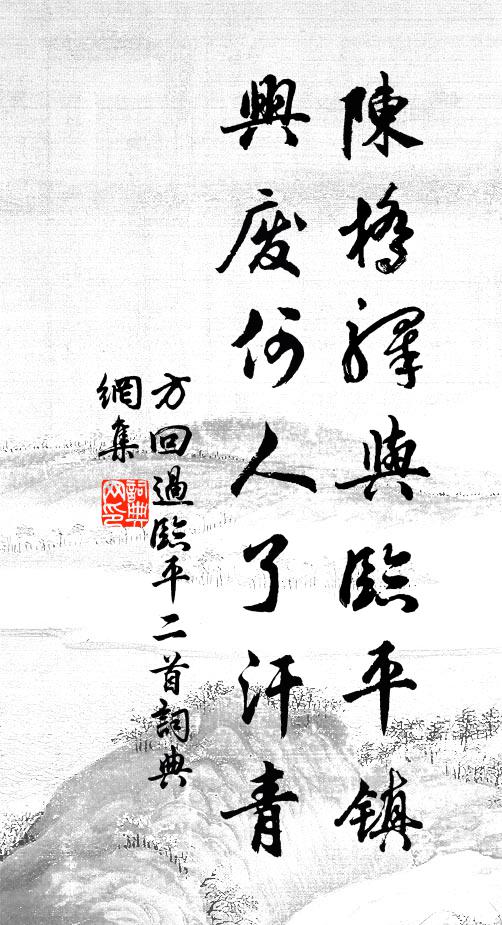 陳橋驛與臨平鎮
興廢何人了汗青
方回過臨平二首詞典
網集
詞典網印